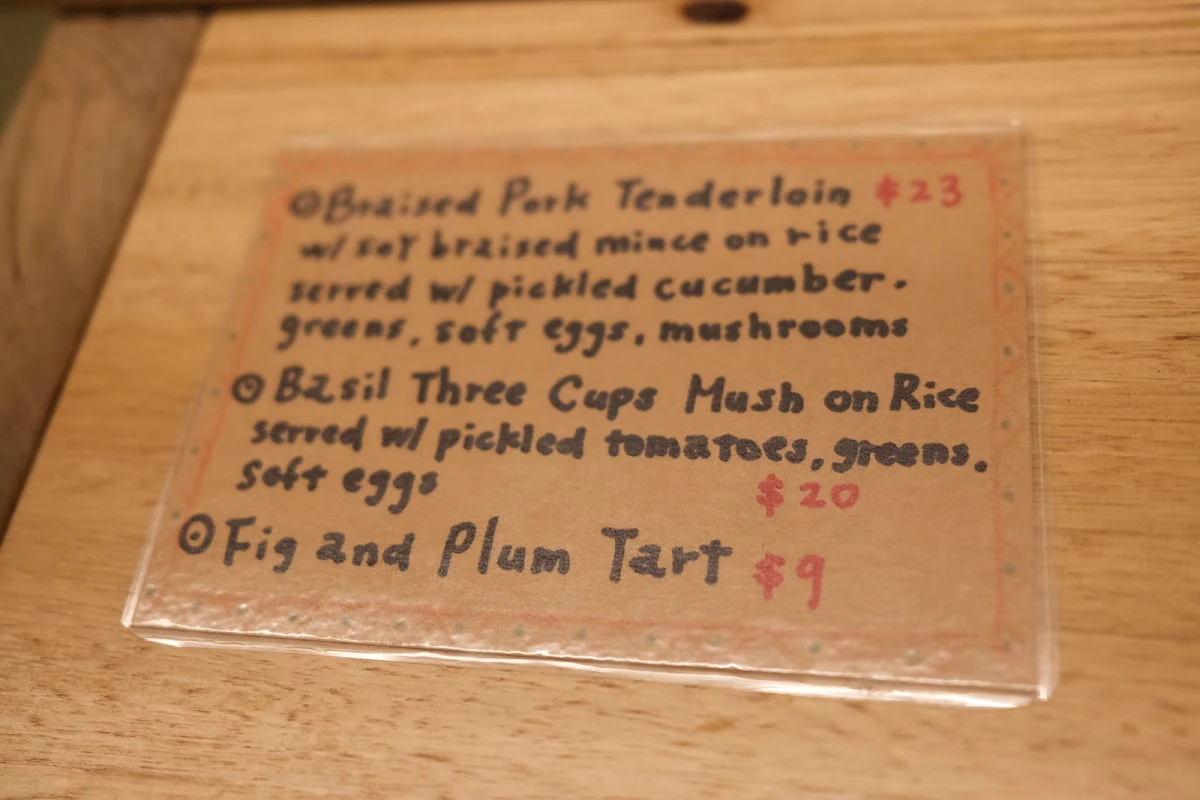 Braised Pork Tenderloin $23
w/ soy braised mince on rice
served w/ pickled cucumber.
greens, soft eggs, mushrooms
Basil Three Cups Mush on Rice
served w/ pickled tomatoes, greens.
soft eggs $20
Fig and Plum Tart $9